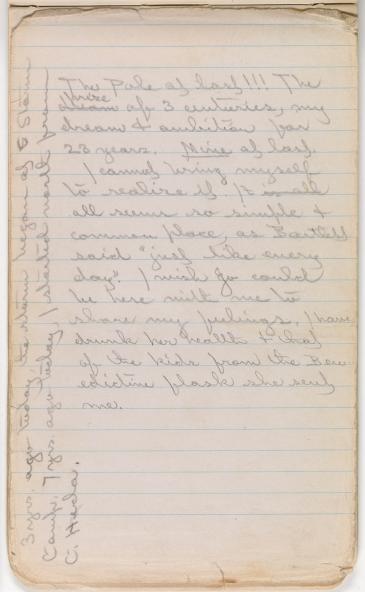 The Pole at last!!! The
prize
dream of 3 centuries, my
dream & ambition for
23 years. Mine at last.
I cannot bring myself
to realize it. It is all
all seems so simple &
common place, as Bartlett
said "just like every
day". I wish Jo could
be here with me to
share my feelings. I have
drunk her health & that
of the kids from the Ben-
edictine flask she sent
me.
3 yrs. ago today the storm began at Storm
Camp. 7 yrs. ago today I started north from
C. Hecla.